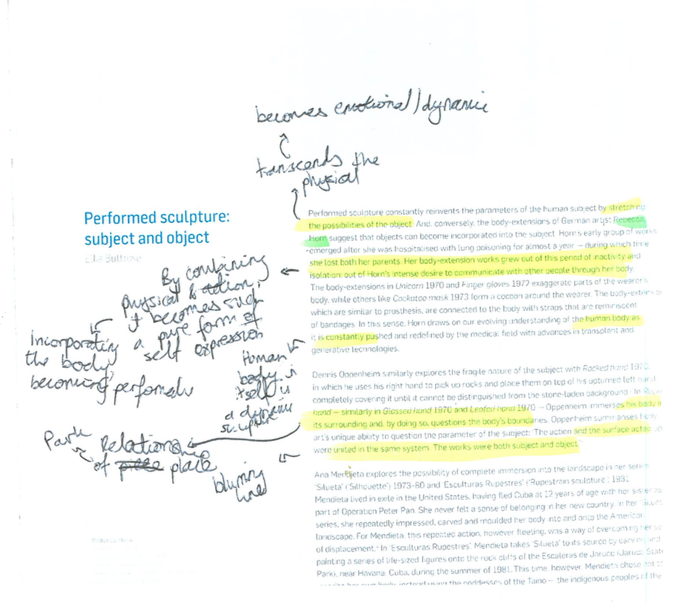 becomes emotional/dynamic
transcends the
physical
Performed sculpture:
subject and object
By combining
physical & action,
it becomes such
a pure form of
self expression
Incorporating
the body,
becoming
Human
body in
itself is
a
Relationship
of place
blurring
lines
Performed sculpture constantly reinvents the parameters of the human subject by stretching
the possibilities of the object. And, conversely, the body-extensions of German artist Rebecca
Horn suggest that objects can become incorporated into the subject. Horn's early group of works
emerged after she was hospitalised with lung poisoning for almost a year – during which time
she lost both her parents. Her body-extension works grew out of this period of inactivity and
isolation out of Horn's intense desire to communicate with other people through her body.
The body-extensions in Unicorn 1970 and Finger gloves 1972 exaggerate parts of the wearer's
body, while others like Cockatoo mask 1973 form a cocoon around the wearer. The body-extensions
which are similar to prosthesis, are connected to the body with straps that are reminiscent
of bandages. In this sense, Horn draws on our evolving understanding of the human body as
it is constantly pushed and redefined by the medical field with advances in transplant and
generative technologies.
Dennis Oppenheim similarly explores the fragile nature of the subject with Rocked hand 1970
in which he uses his right hand to pick up rocks and place them on top of his upturned left hand
completely covering it until it cannot be distinguished from the stone-laden background. In
hand – similarly in Glassed hand 1970 and Leafed hand 1970 – Oppenheim immerses his body in
its surrounding and, by doing so, questions the body's boundaries. Oppenheim summarises
art's unique ability to question the parameter of the subject: The action and the surface
were united in the same system. The works were both subject and object.
Ana Mendieta explores the possibility of complete immersion into the landscape in her series
'Silueta' ('Silhouette') 1973-80 and 'Esculturas Rupestres' ('Rupestrian sculpture') 1981.
Mendieta lived in exile in the United States, having fled Cuba at 12 years of age with her sister as
part of Operation Peter Pan. She never felt a sense of belonging in her new country. In her
series, she repeatedly impressed, carved and moulded her body into and onto the American
landscape. For Mendieta, this repeated action, however fleeting, was a way of overcoming her
of displacement. In 'Esculturas Rupestres', Mendieta takes 'Silueta' to its source by carving and
painting a series of life-sized figures onto the rock cliffs of the Escaleras de Jaruco (Jaruco
Park), near Havana, Cuba, during the summer of 1981. This time, however, Mendieta chose not to
goddesses of the Taíno – the indigenous peoples of the